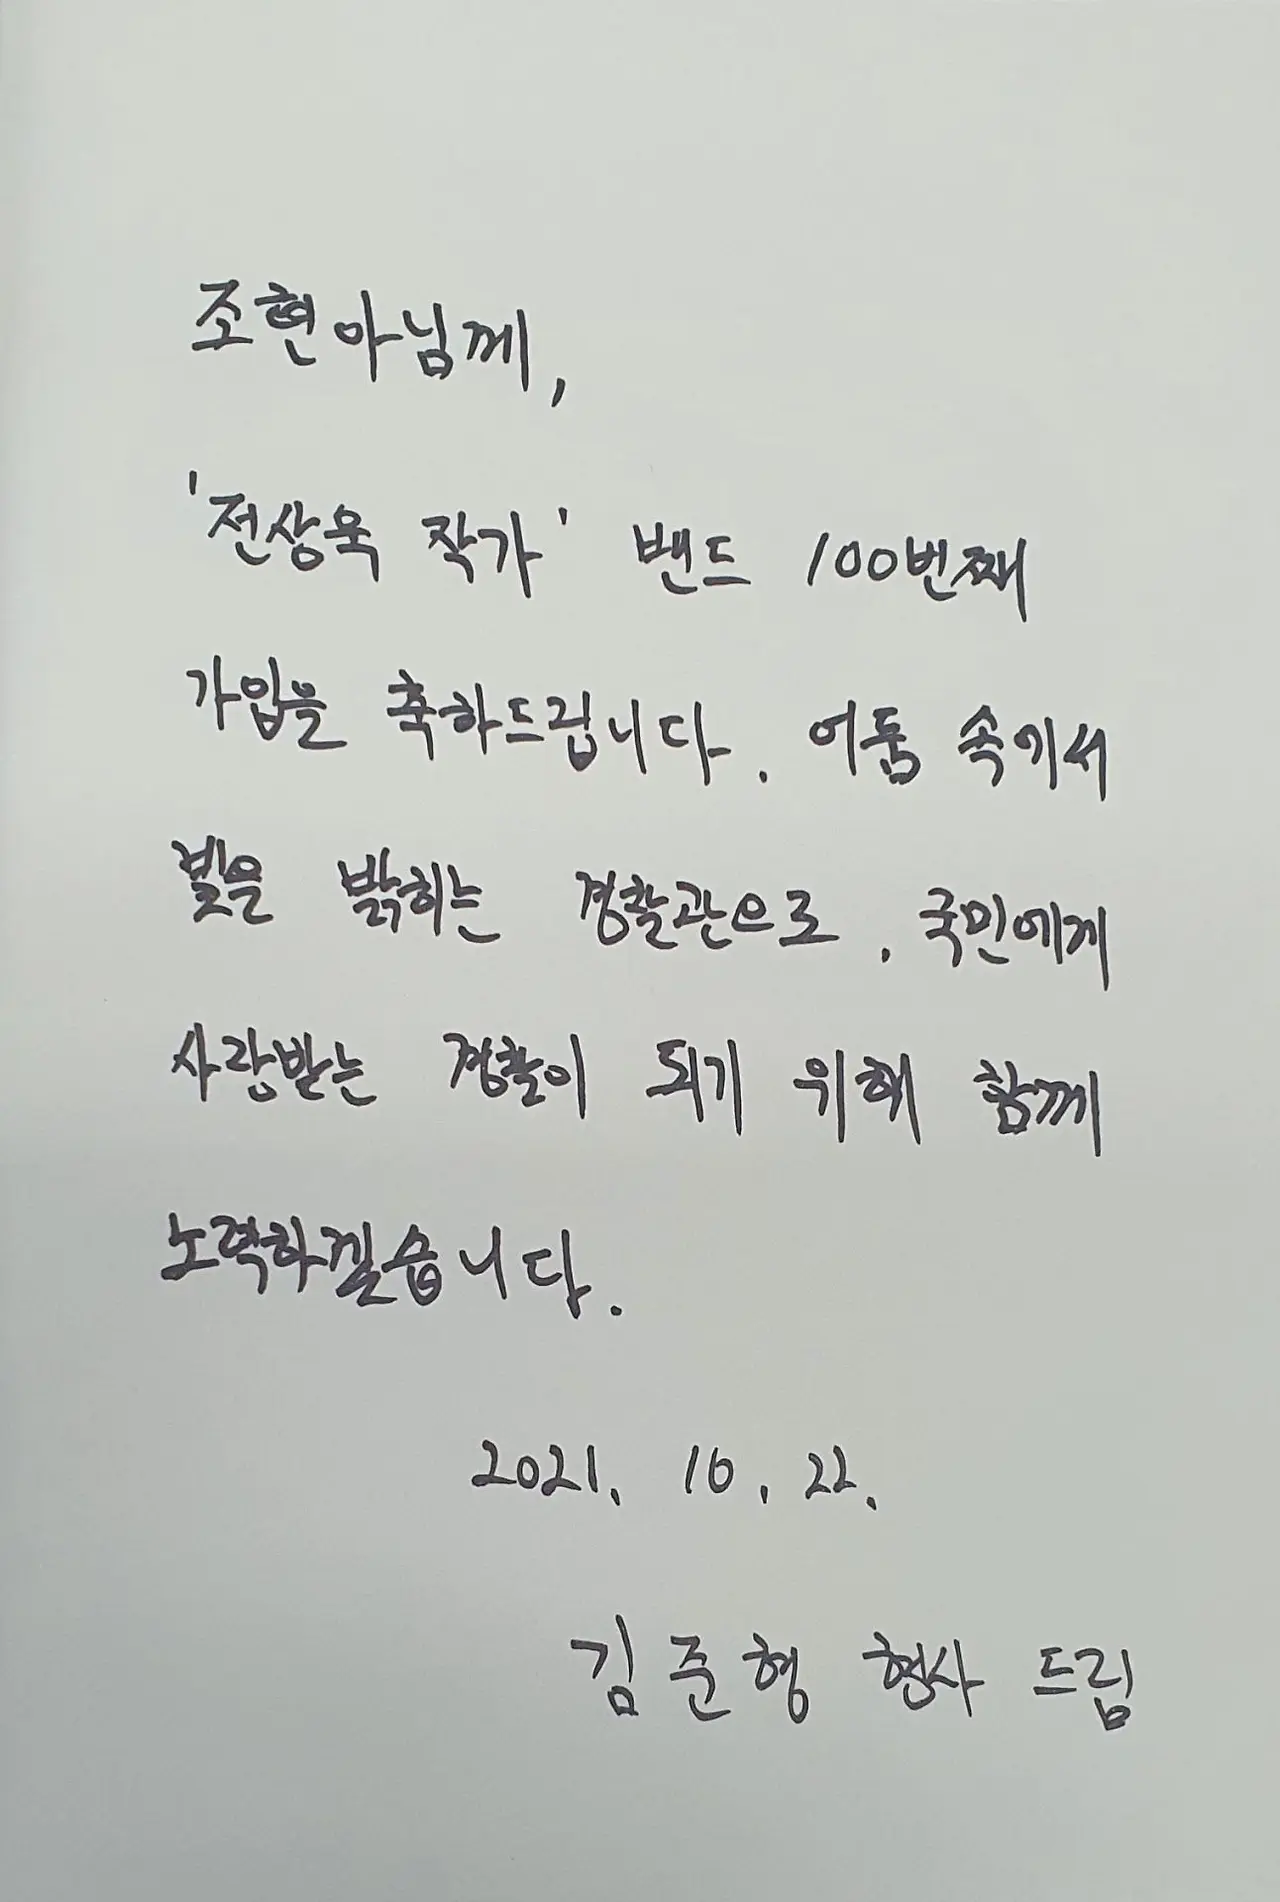 조현아님께,
'전상욱 작가' 밴드 100번째
가입을 축하드립니다. 어둠 속에서
빛을 밝히는 경찰관으로. 국민에게
사랑받는 경찰이 되기 위해 함께
노력하겠습니다.
2021. 10. 22.
김준형 형사 드림